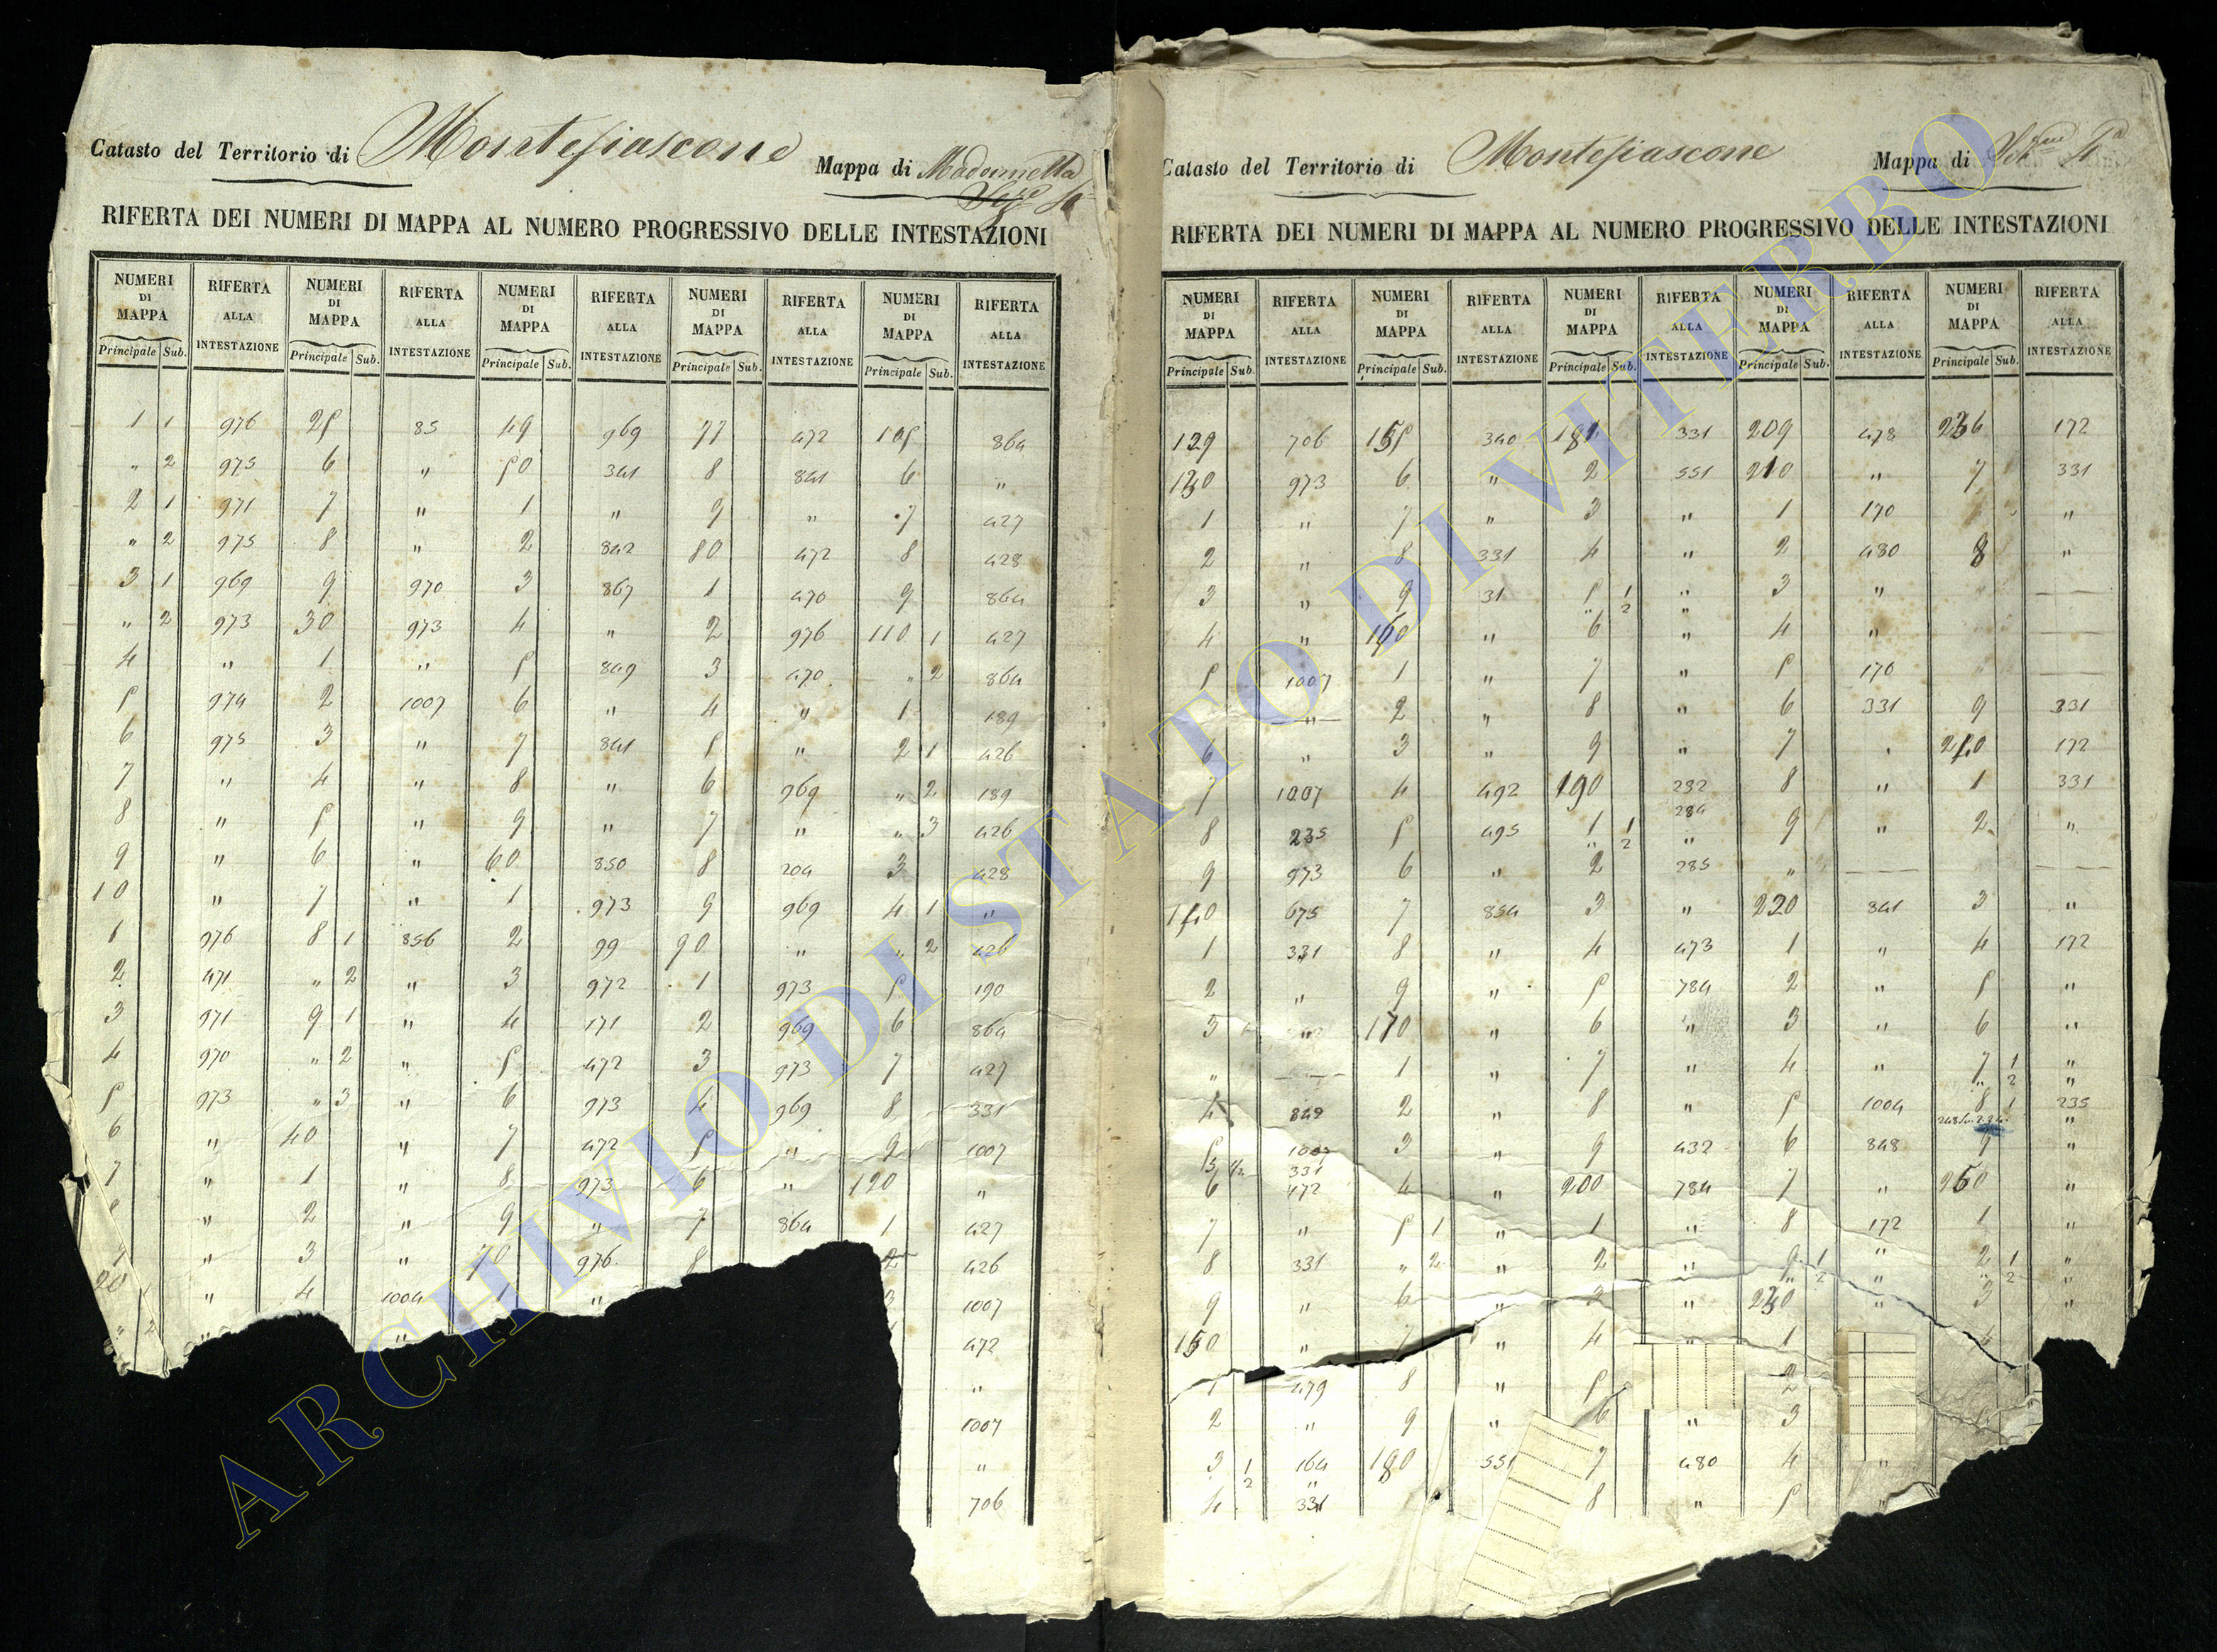 Catasto del Territorio di Montefiascone Mappa di Madonnella
RIFERTA DEI NUMERI DI MAPPA AL NUMERO PROGRESSIVO DELLE INTESTAZIONI
NUMERI DI MAPPA RIFERTA ALLA INTESTAZIONE NUMERI DI MAPPA RIFERTA ALLA INTESTAZIONE NUMERI DI MAPPA RIFERTA ALLA INTESTAZIONE NUMERI DI MAPPA RIFERTA ALLA INTESTAZIONE NUMERI DI MAPPA RIFERTA ALLA INTESTAZIONE
Principale Sub. Principale Sub. Principale Sub. Principale Sub. Principale Sub.
1 1 976 25 85 49 969 77 472 105 864
" 2 975 6 " 50 341 8 841 6 "
2 1 971 7 " 1 " 9 " 7 427
" 2 975 8 " 2 842 80 472 8 428
3 1 969 9 970 3 867 1 470 9 864
" 2 973 30 973 4 " 2 976 110 1 427
4 " 1 " 5 849 3 470 " 2 864
5 974 2 1007 6 " 4 " 1 189
6 975 3 " 7 841 5 " 2 1 426
7 " 4 " 8 " 6 969 " 2 189
8 " 5 " 9 " 7 " " 3 426
9 " 6 " 60 850 8 204 3 428
10 " 7 " 1 973 9 969 4 1 "
1 976 8 1 856 2 99 90 " " 2 426
2 471 " 2 " 3 972 1 973 5 190
3 971 9 1 " 4 171 2 969 6 864
4 970 " 2 " 5 472 3 973 7 427
5 973 " 3 " 6 973 4 969 8 331
6 " 40 " 7 472 5 " 9 1007
7 " 1 " 8 973 6 " 120 "
" 2 " 9 " 7 864 1 427
" 3 " 70 976 8 2 426
20 " 4 1004 1 " 3 1007
" 2 " " 472
"
1007
"
706
Catasto del Territorio di Montefiascone Mappa di
RIFERTA DEI NUMERI DI MAPPA AL NUMERO PROGRESSIVO DELLE INTESTAZIONI
NUMERI DI MAPPA RIFERTA ALLA INTESTAZIONE NUMERI DI MAPPA RIFERTA ALLA INTESTAZIONE NUMERI DI MAPPA RIFERTA ALLA INTESTAZIONE NUMERI DI MAPPA RIFERTA ALLA INTESTAZIONE NUMERI DI MAPPA RIFERTA ALLA INTESTAZIONE
Principale Sub. Principale Sub. Principale Sub. Principale Sub. Principale Sub.
129 706 155 340 181 331 209 478 236 172
130 973 6 " 2 551 210 " 7 331
1 " 7 " 3 " 1 170 "
2 " 8 331 4 " 2 480 8 "
3 " 9 31 5 1 " 3 "
4 " 160 " " 2 6 " 4 "
5 1007 1 " 7 " 5 170
" 2 " 8 " 6 331 9 331
6 " 3 " 9 " 7 240 172
7 1007 4 492 190 282 8 " 1 331
8 235 5 495 1 1 284 9 " 2 "
9 973 6 " " 2 2 " 285 "
140 675 7 854 3 " 220 841 3 "
1 331 8 " 4 473 1 " 4 172
2 " 9 " 5 784 2 " 5 "
3 170 " 6 " 3 " 6 "
" 1 " 7 " 4 " 7 1 "
4 849 2 " 8 " 5 1004 " 2 " 8 1 235
5 1007 3 " 9 432 6 848 9 "
5 1/2 331
6 472 4 " 200 784 7 " 250 "
7 " 5 1 " 1 " 8 172 1 "
8 331 " 2 " 2 " 9 1 " 2 1 "
9 " 6 " 3 " " 2 230 " " 2 3 "
150 " 7 " 4 1 4
1 479 8 " 5 2
2 " 9 " 6 " 3
3 1 164 180 551 7 480 4 "
2 "
4 331 8 " 5 "
ARCHIVIO DI STATO DI VITERBO